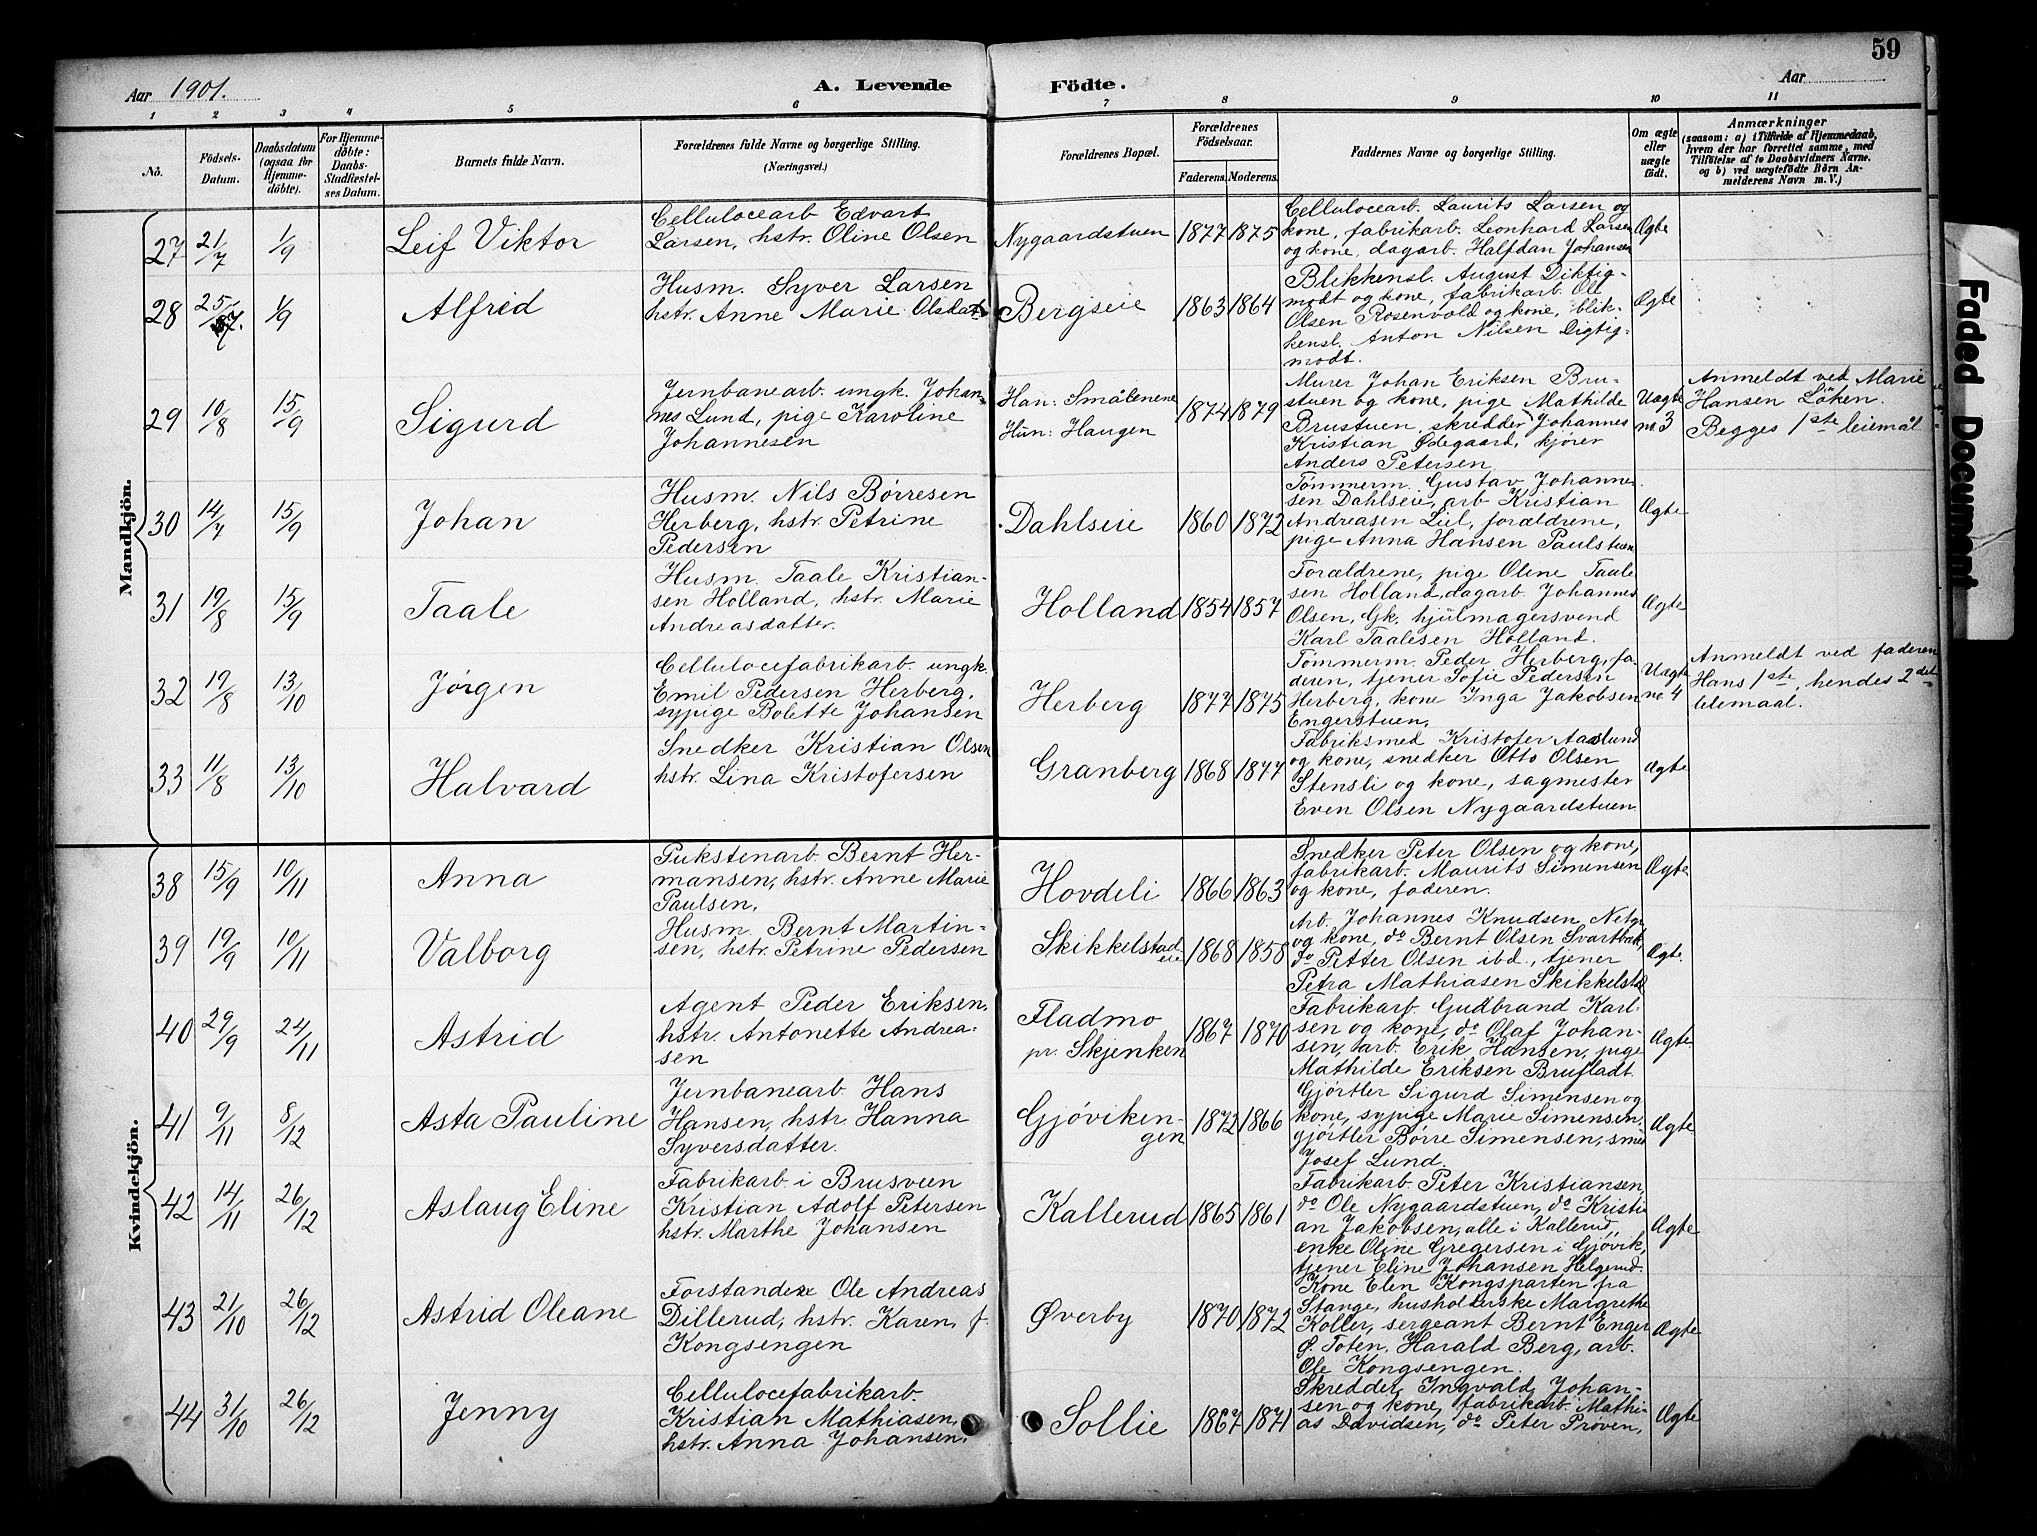 59
Aar 1901. A. Levende Födte. Aar
1 2 3 4 5 6 7 8 9 10 11
No.
Födsels-Datum.
Daabsdatum (ogsaa for Hjemmedöbte).
For Hjemmedöbte: Daabs-Stadfestelses Datum.
Barnets fulde Navn.
Forældrenes fulde Navne og borgerlige Stilling. (Næringsvei.)
Forældrenes Bopæl.
Forældrenes Födselsaar.
Faderens. Moderens.
Faddernes Navne og borgerlige Stilling.
Om ægte eller uægte födt.
Anmærkninger
(saasom: a) i Tilfælde af Hjemmedaab, hvem der har forrettet samme, med Tilföielse af to Daabsvidners Navne. og b) ved uægtefödte Börn Anmelderens Navn m. V.)
Mandkjön.
27 21/7 1/9 Leif Viktor
Cellulocearb. Edvart
Larsen, hstr. Oline Olsen
Nygaardstuen 1877 1875
Cellulocearb. Laurits Larsen og
kone, fabrikarb. Leonhard Larsen
og kone, dagarb. Halfdan Johansen
Ægte
28 25/7. 1/9 Alfrid
Husm. Syver Larsen
hstr. Anne Marie Olsdat.
Bergseie 1863 1864
Blikkensl. August Diktig-
modt og kone, fabrikarb. Ole
Olsen Rosenvold og kone, blik-
kensl. Anton Nilsen Digtig-
modt.
Ægte
29 10/8 15/9 Sigurd
Jernbanearb. ungk. Johan-
nes Lund, pige Karoline
Johannesen
Han: Smålenene
Hun: Haugen
1874 1879
Murer Johan Eriksen Bru-
stuen og kone, pige Mathilde
Brustuen, skredder Johannes
Kristian Ødegaard, kjører
Anders Petersen
Uægte
no 3
Anmeldt ved Marie
Hansen Löken.
Begges 1ste leiemål
30 14/7 15/9 Johan
Husm. Nils Børresen
Herberg, hstr. Petrine
Pedersen
Dahlseie 1860 1872
Tømmerm. Gustav Johanne-
sen Dahlseie, arb. Kristian
Andreasen Liel, forældrene,
pige Anna Hansen Paulstuen
Ægte
31 19/8 15/9 Taale
Husm. Taale Kristian-
sen Holland, hstr. Marie
Andreasdatter.
Holland 1854 1857
Forældrene, pige Oline Taale
sen Holland, dagarb. Johannes
Olsen, Gk. hjulmagersvend
Karl Taalesen Holland.
Ægte
32 19/8 13/10 Jørgen
Cellulocefabrikarb. ungk.
Emil Pedersen Herberg,
sypige Bolette Johansen
Herberg 1877 1875
Tømmerm. Peder Herberg, fa
deren, tjener Sofie Pedersen
Herberg, kone Inga Jakobsen
Engerstuen,
Uægte
no 4
Anmeldt ved faderen
Hans 1ste, hendes 2det
leiemaal.
33 11/8 13/10 Halvard
Snedker Kristian Olsen
hstr. Lina Kristofersen
Granberg 1868 1877
Fabriksmed Kristofer Aaslund
og kone, snedker Otto Olsen
Stensli og kone, sagmester
Even Olsen Nygaardstuen
Ægte
Kvindekjön.
38 15/9 10/11 Anna
Pukstenarb. Bernt Her-
mansen, hstr. Anne Marie
Paulsen,
Hovdeli 1866 1863
Snedker Peter Olsen og kone,
fabrikarb. Maurits Simensen
og kone, faderen.
Ægte
39 19/9 10/11 Valborg
Husm. Bernt Martin-
sen, hstr. Petrine Pedersen
Skikkelstad-
eie
1868 1858
Arb. Johannes Knudsen
og kone, do Bernt Olsen Svartbak,
do Petter Olsen ibd., tjener
Petra Mathiasen Skikkelstd
Ægte.
40 29/9 24/11 Astrid
Agent Peder Eriksen,
hstr. Antonette Andrea-
sen
Fladmo
pr. Skjenken
1867 1870
Fabrikarb. Gudbrand Karl-
sen og kone, do Olaf Johan-
sen, arb. Erik Hansen, pige
Mathilde Eriksen Brufladt.
Ægte.
41 9/11 8/12 Asta Pauline
Jernbanearb. Hans
Hansen, hstr. Hanna
Syversdatter.
Gjøviken-
gen
1872 1866
Gjørtler Sigurd Simensen og
kone, sypige Marie Simensen,
gjørtler Børre Simensen, smed
Josef Lund.
Ægte
42 14/11 26/12 Aslaug Eline
Fabrikarb. i Brusveen
Kristian Adolf Petersen
hstr. Marthe Johansen
Kallerud 1865 1861
Fabrikarb. Peter Kristiansen,
do Ole Nygaardstuen, do Kristi-
an Jakobsen, alle i Kallerud,
enke Oline Gregersen i Gjøvik,
tjener Eline Johansen Helgerud.
Ægte
43 21/10 26/12 Astrid Oleane
Forstander Ole Andreas
Dillerud, hstr. Karen, f.
Kongsengen
Øverby 1870 1872
Kone Elen Kongsparten fra
Stange, husholderske Margrethe
Koller, sergeant Bernt Enger
Ø. Toten, Harald Berg, arb.
Ole Kongsengen.
Ægte
44 31/10 26/12 Jenny
Cellulocefabrikarb.
Kristian Mathiasen,
hstr. Anna Johansen,
Sollie 1867 1871
Skredder Ingvald Johan-
sen og kone, fabrikarb. Mathi-
as Davidsen, do Peter Prøven,
Ægte
Faded Document